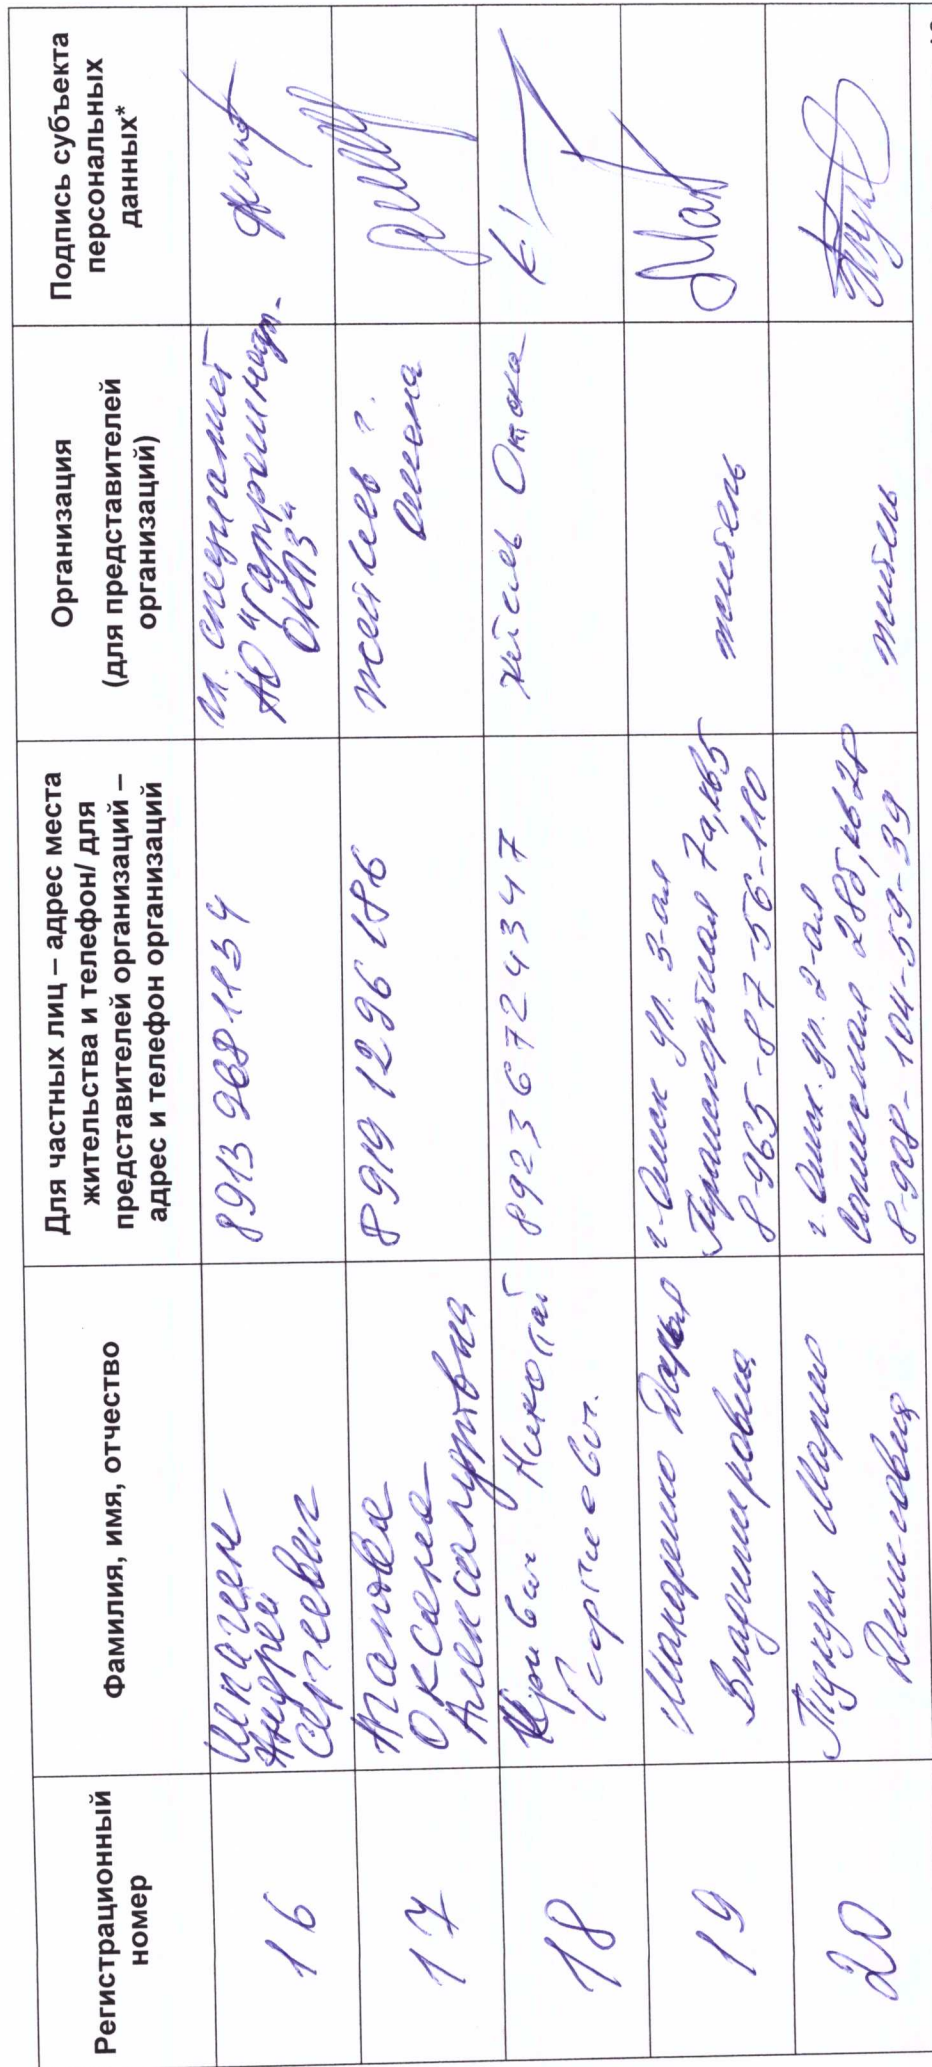 Регистрационный
номер
Фамилия, имя, отчество
Для частных лиц – адрес места
жительства и телефон/ для
представителей организаций –
адрес и телефон организаций
Организация
(для представителей
организаций)
Подпись субъекта
персональных
данных*
16
Андрей
Сергеевич
8913 968 1134
гл. специалист
АО "Газпромнефть-
ОНПЗ"
17
Агапова
Оксана
Александровна
8919 1296 186
18
Николай
Георгиевич.
8923 672 4347
житель Омска
19
Макаренко Дарья
Владимировна
г. Омск ул. 3-ая
Транспортная 7а, кв5
8-965-87-56-110
житель
20
Мария
г. Омск. ул. 2-ая
28б, кв 28
8-908-104-59-39
житель